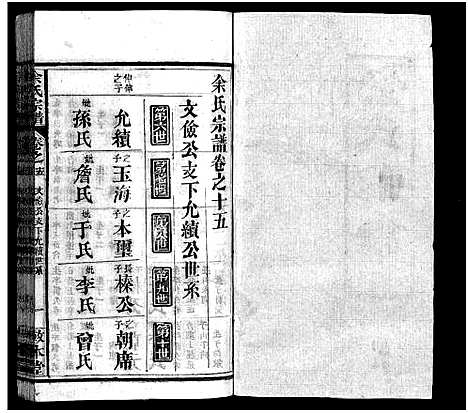 余氏宗譜卷之十五
文儉公支下允績公世系
第六世
第七世
第八世
第九世
第十世
仲偉之子
允績
妣孫氏
之子玉海
妣詹氏
之子本璽
妣于氏
長子榛公
妣李氏
之子朝席
妣曾氏
余氏宗譜
卷之十五
文儉公支下允績世系
敦本堂